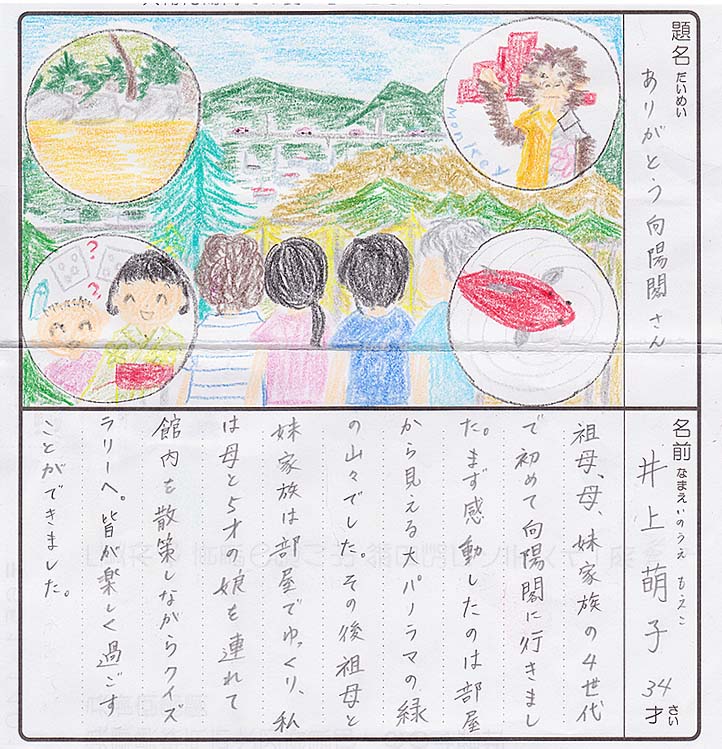 題名
だいめい
ありがとう向陽閣さん
monkey
?
?
名前
なまえ いのうえ もえこ
井上萌子 34才
さい
祖母、母、妹家族の4世代
で初めて向陽閣に行きまし
た。まず感動したのは部屋
から見える大パノラマの緑
の山々でした。その後祖母と
妹家族は部屋でゆっくり、私
は母と5才の娘を連れて
館内を散策しながらクイズ
ラリーへ。皆が楽しく過ごす
ことができました。